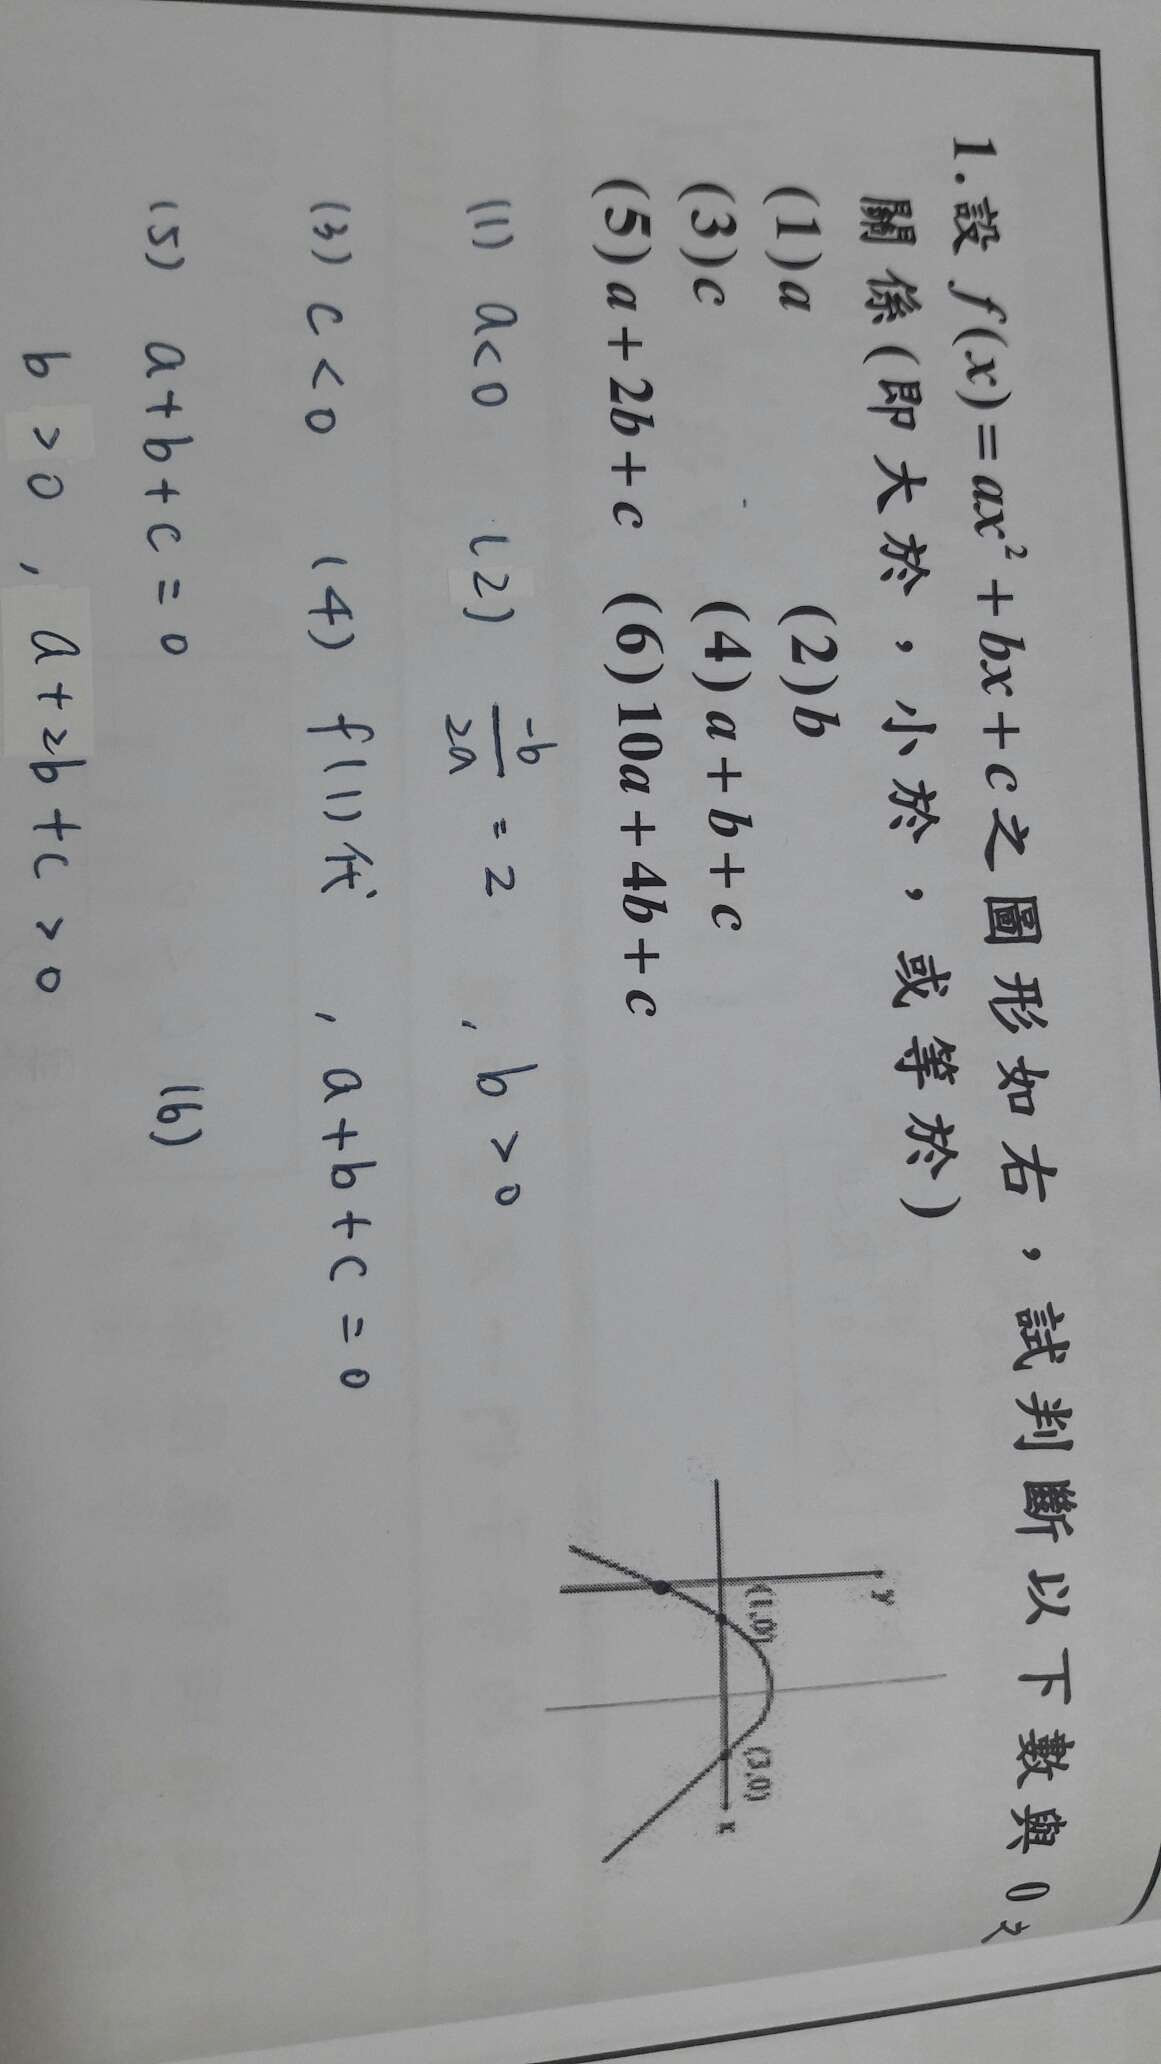 1.設 f(x)=ax²+bx+c之圖形如右，試判斷以下數與0之
關係(即大於，小於，或等於)
(1)a (2)b
(3)c (4)a+b+c
(5)a+2b+c (6)10a+4b+c
y
(1,0)
(3,0)
x
(1) a<0 (2) -b/2a = 2 , b>0
(3) c<0 (4) f(1)代 , a+b+c=0
(5) a+b+c=0 (6)
b>0 , a+2b+c>0